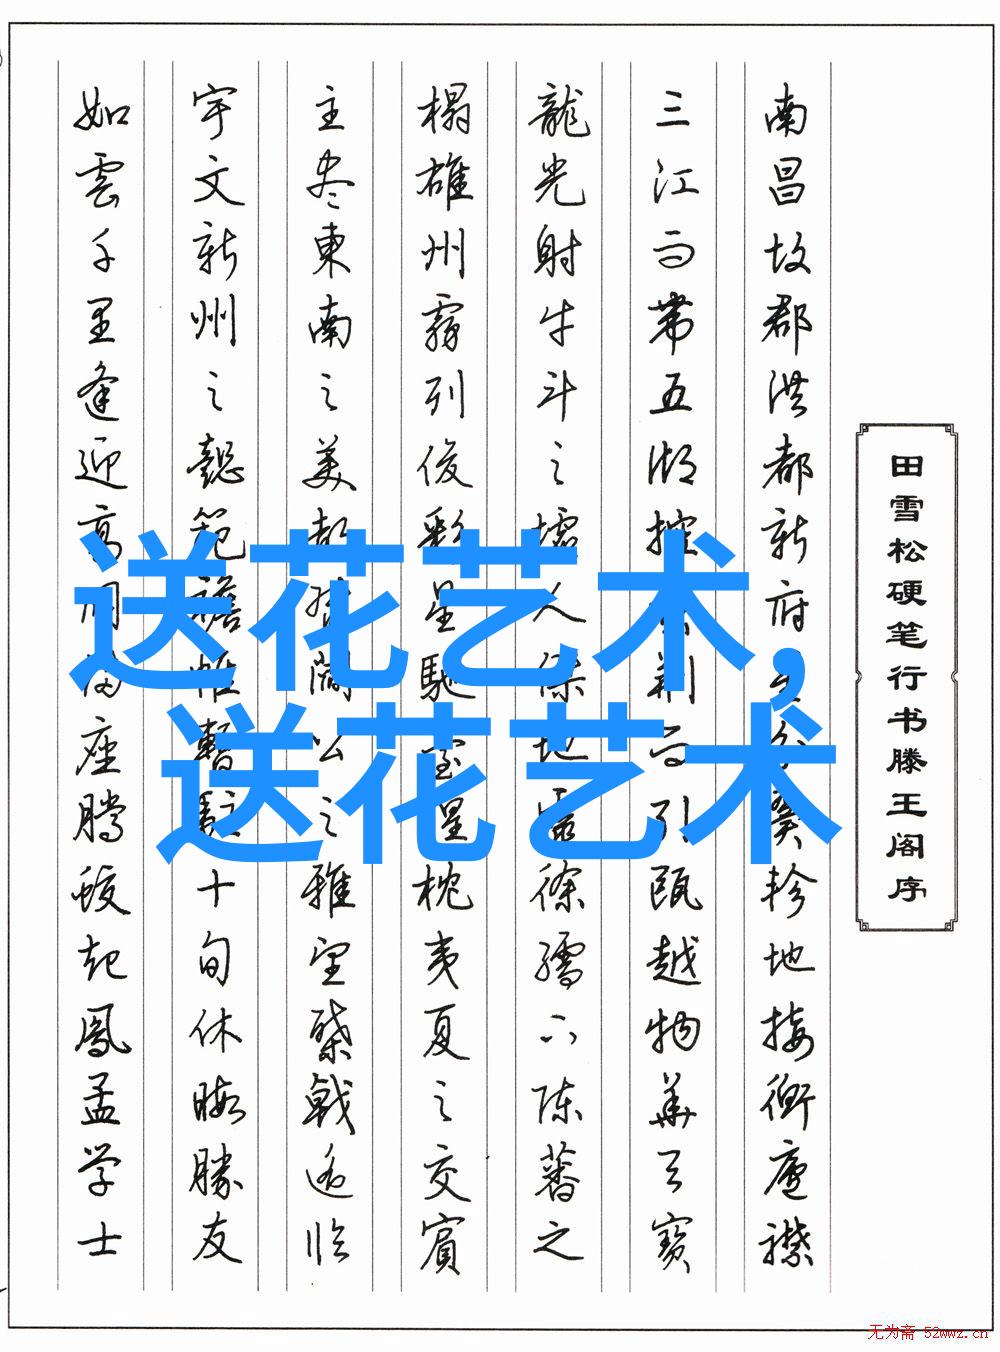 送花艺术,
送花艺术
田雪松硬笔行书滕王阁序
南昌故郡洪都新府星分翼軫地接衡廬襟
三江而帶五湖控荆而引瓯越物華天寶
龍光射牛斗之墟人傑地靈徐孺下陈蕃之
榻雄州霧列俊彩星馳臺隍枕夷夏之交賓
主尽東南之美都督阎公之雅望棨戟遥临
宇文新州之懿範襜帷暫駐十旬休暇勝友
如雲千里逢迎高朋满座腾蛟起鳳孟学士
无为斋 52wwz.cn